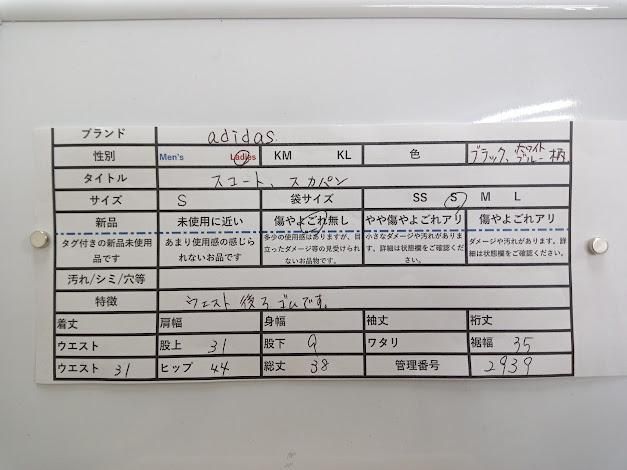 ブランド adidas.
性別 Men's Ladies KM KL 色 ブラック、ホワイト ブルー 柄
タイトル スコート、スカパン
サイズ S 袋サイズ SS S M L
新品 未使用に近い 傷やよごれ無し やや傷やよごれアリ 傷やよごれアリ
タグ付きの新品未使用品です あまり使用感の感じられないお品です 多少の使用感はありますが、目立ったダメージ等の見受けられないお品物です。 小さなダメージや汚れがあります。詳細は状態欄をご確認ください。 ダメージや汚れがあります。詳細は状態欄をご確認ください。
汚れ/シミ/穴等
特徴 ウエスト後ろゴムです。
着丈 肩幅 身幅 袖丈 裄丈
ウエスト 股上 31 股下 9 ワタリ 裾幅 35
ウエスト 31 ヒップ 44 総丈 38 管理番号 2939